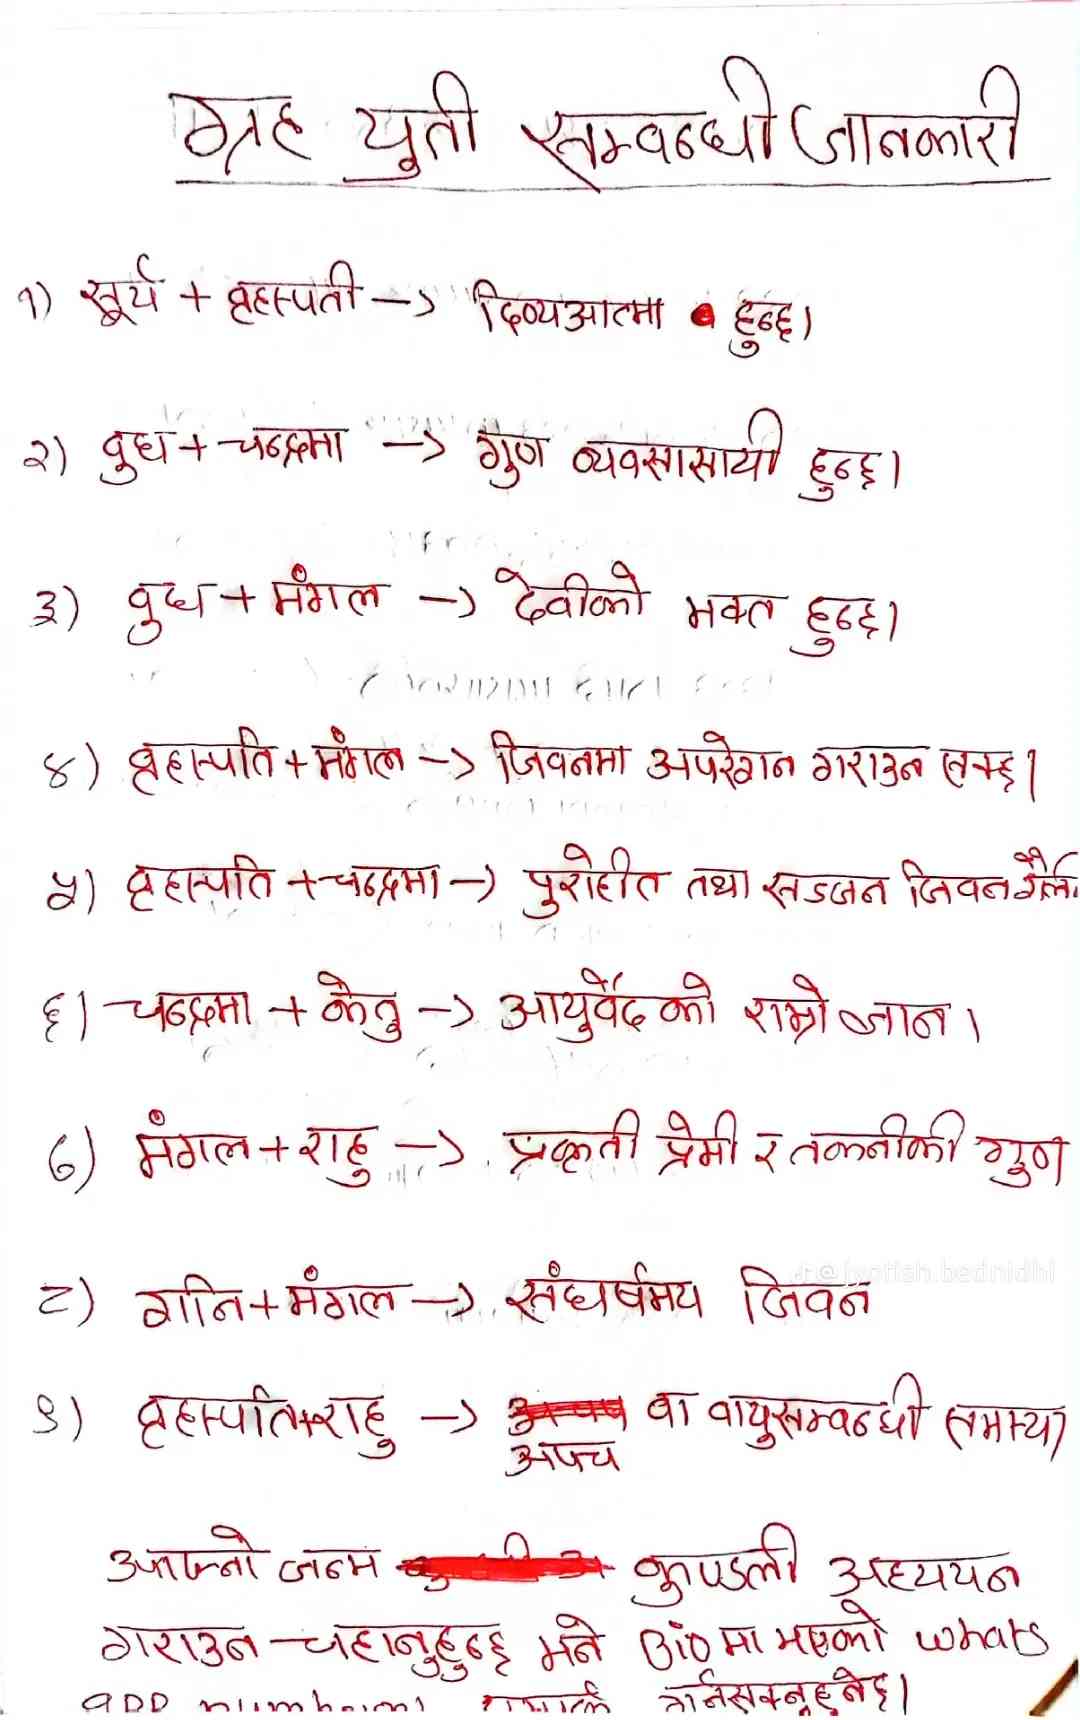 ग्रह युती सम्वन्धी जानकारी
१) सूर्य + बृहस्पती -> दिव्यआत्मा हुन्छ।
२) वुध + चन्द्रमा -> गुण व्यवसासायी हुन्छ।
३) वुध + मंगल -> देवीको भक्त हुन्छ।
४) बृहस्पति + मंगल -> जिवनमा अपरेशन गराउन सक्छ।
५) बृहस्पति + चन्द्रमा -> पुरोहीत तथा सज्जन जिवनशैली
६। चन्द्रमा + केतु -> आयुर्वेदको राम्रो ज्ञान।
७) मंगल + राहु -> प्रकृती प्रेमी र तकनीकी गुण
@jyotish.bednidhi
८) शनि + मंगल -> संघर्षमय जिवन
९) बृहस्पति+राहु -> वा वायुसम्वन्धी समस्या
अपच
आफ्नो जन्म कुण्डली अध्ययन
गराउन चहानुहुन्छ भने Bio मा भएको whats
app सम्पर्क गर्नसक्नुहुनेछ।